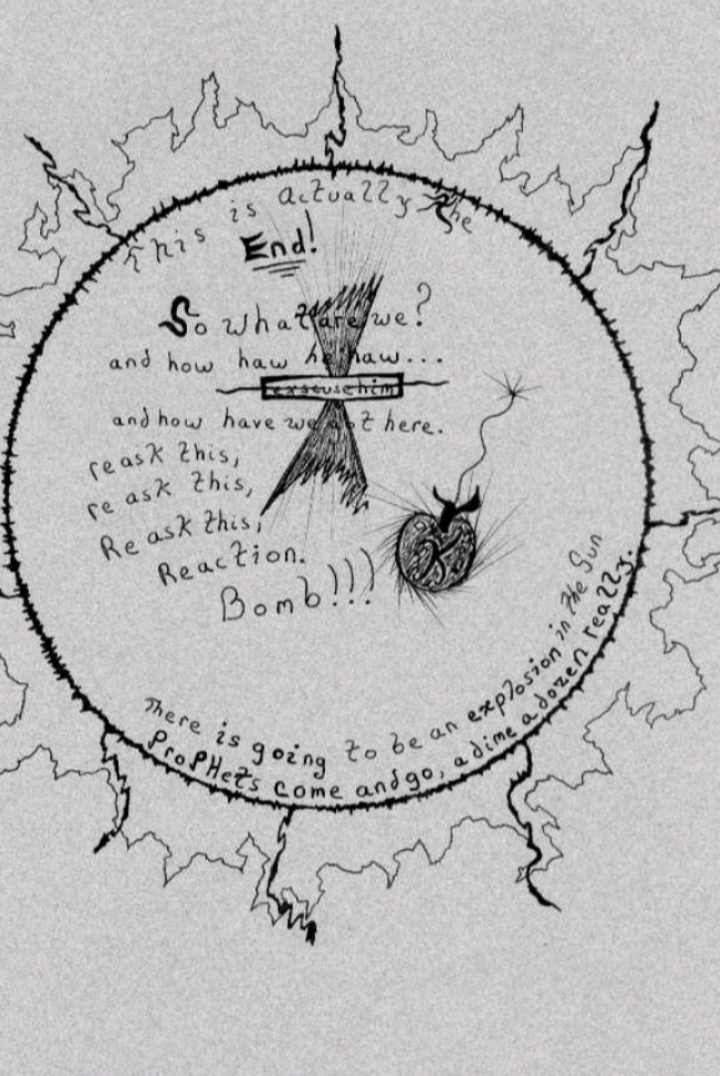 This is actually the
End!
So what are we?
and how haw he haw...
exscuse him
and how have we got here.
reask this,
re ask this,
Re ask this,
Reaction.
Bomb!!!
There is going to be an explosion in the Sun
Prophets come and go, a dime a dozen really.